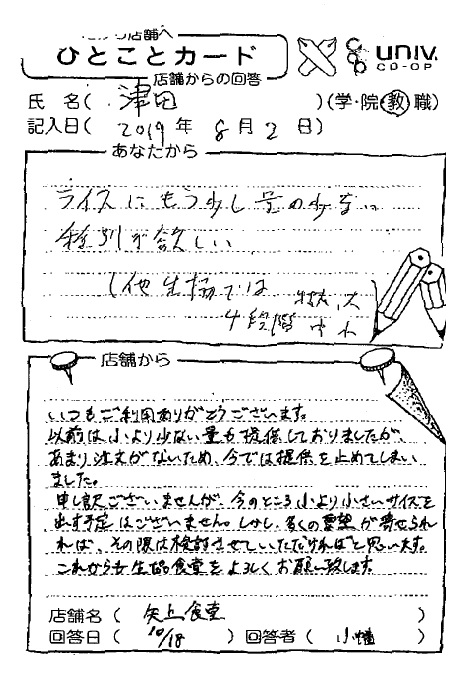 から店舗へ
ひとことカード
店舗からの回答
univ.
CO-OP
氏 名( 津田 )(学・院・教・職)
記入日( 2019 年 8 月 2 日)
あなたから
ライスにもう少し量の少ない
種別が欲しい
(他生協では
4段階
店舗から
いつもご利用ありがとうございます。
以前は小より少ない量も提供しておりましたが、
あまり注文がないため、今では提供を止めてしまい
ました。
申し訳ございませんが、今のところ小より小さいサイズを
出す予定はございません。しかし、多くの要望が寄せられ
れば、その際は検討させていただければと思います。
これからも生協食堂をよろしくお願い致します
店舗名( 矢上食堂 )
回答日( 10/18 ) 回答者( 小幡 )